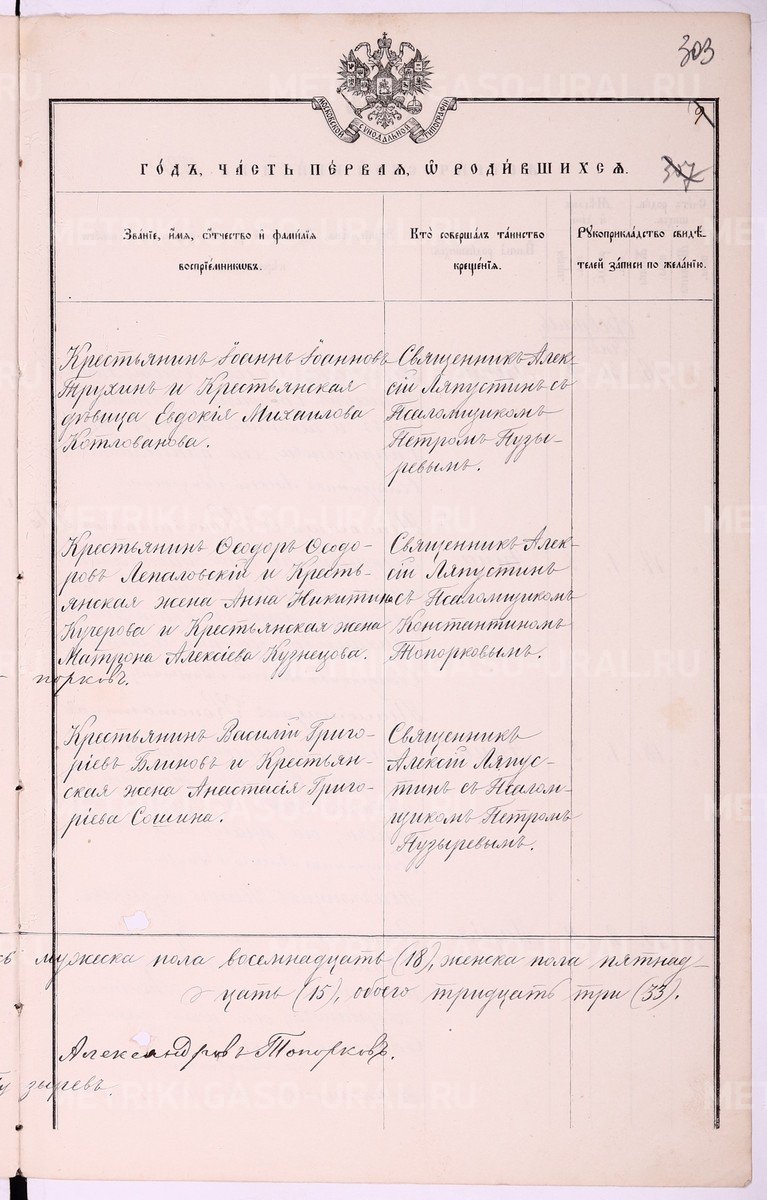 303
МОСКОВСКОЙ СѴНОДАЛЬНОЙ ТИПОГРАФІИ
9
ГО́ДЪ, ЧА́СТЬ ПЕ́РВАЯ, Ѡ РОДИ́ВШИХСЯ.
307
Зва́ніе, и́мя, ѻ҆́тчество и҆ фами́лія
воспріе́мникѡвъ.
Кто̀ соверша́лъ та́инство
креще́нія.
Рꙋкоприкла́дство свидѣ́-
телей за́писи по жела́нію.
Крестьянинъ Іоаннъ Іоанновъ
Трухинъ и Крестьянская
дѣвица Евдокія Михаилова
Котлованова.
Священникъ Алек-
сій Ляпустинъ съ
Псаломщикомъ
Петромъ Пузы-
ревымъ.
Крестьянинъ Ѳеодоръ Ѳеодо-
ровъ Лепаловскій и Кресть-
янская жена Анна Никитина
Кучерова и Крестьянская жена
Матрона Алексіева Кузнецова.
порковъ.
Священникъ Алек-
сій Ляпустинъ
съ Псаломщикомъ
Константиномъ
Топорковымъ.
Крестьянинъ Василій Григо-
ріевъ Блиновъ и Крестьян-
ская жена Анастасія Григо-
ріева Сошина.
Священникъ
Алексій Ляпус-
тинъ съ Псалом-
щикомъ Петромъ
Пузыревымъ.
мужеска пола восемнадцать (18), женска пола пятнад-
цать (15), обоего тридцать три (33).
Александровъ Топорковъ.
зыревъ.
METRIKI.GASO-URAL.RU